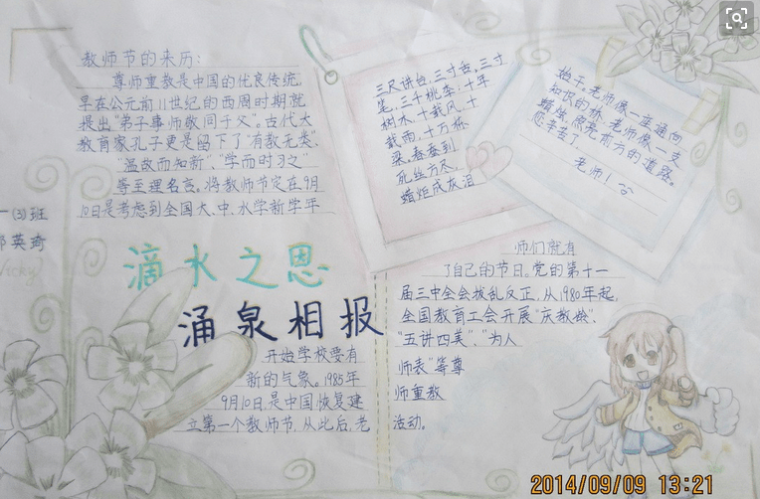 教师节的来历:
尊师重教是中国的优良传统,
早在公元前11世纪的西周时期就
提出"弟子事师敬同于父"。古代大
教育家孔子更是留下了"有教无类"、
"温故而知新"、"学而时习之"
等至理名言。将教师节定在9月
10日是考虑到全国大、中、小学新学年
滴水之恩
涌泉相报
开始学校要有
新的气象。1985年
9月10日,是中国恢复建
立第一个教师节,从此后,老
三尺讲台,三寸舌,三寸
笔,三千桃李;十年
树木,十载风,十
载雨,十万栋
梁。春蚕到
死丝方尽,
蜡炬成灰泪
知识的桥,老师像一支
蜡烛,照亮前方的道路。
您辛苦了
老师!
师们就有
了自己的节日。党的第十一
届三中全会拨乱反正,从1980年起,
全国教育工会开展"庆教龄"、
"五讲四美"、"为人
师表"等尊
师重教
活动。
一(3)班
英琦
Vicky
2014/09/09 13:21